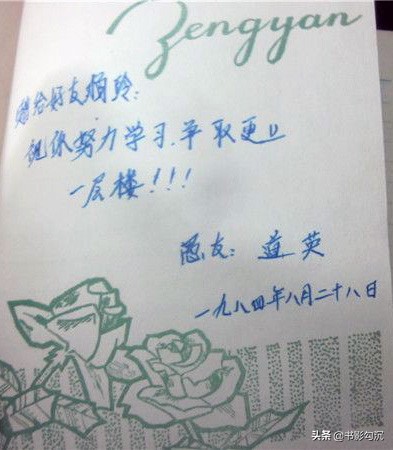 Zengyan
赠给好友烦玲:
祝你努力学习.争取更上
一层楼!!!
愚友: 道英
一九八四年八月二十八日
头条 @书影勾沉